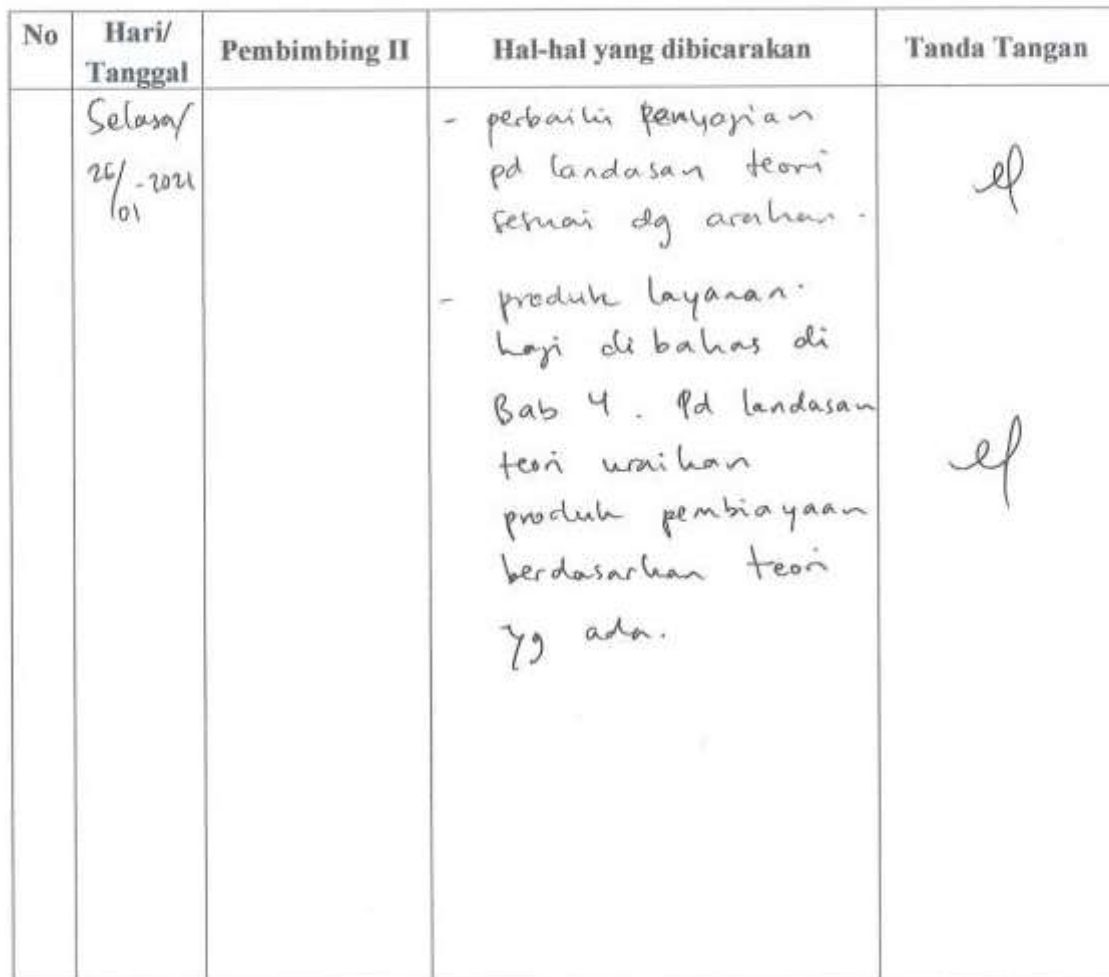 No
Hari/
Tanggal
Pembimbing II
Hal-hal yang dibicarakan
Tanda Tangan
Selasa/
26/01-2021
- perbaiki penyajian
pd landasan teori
sesuai dg arahan.
- produk layanan.
haji dibahas di
Bab 4. Pd landasan
teori uraikan
produk pembiayaan
berdasarkan teori
yg ada.